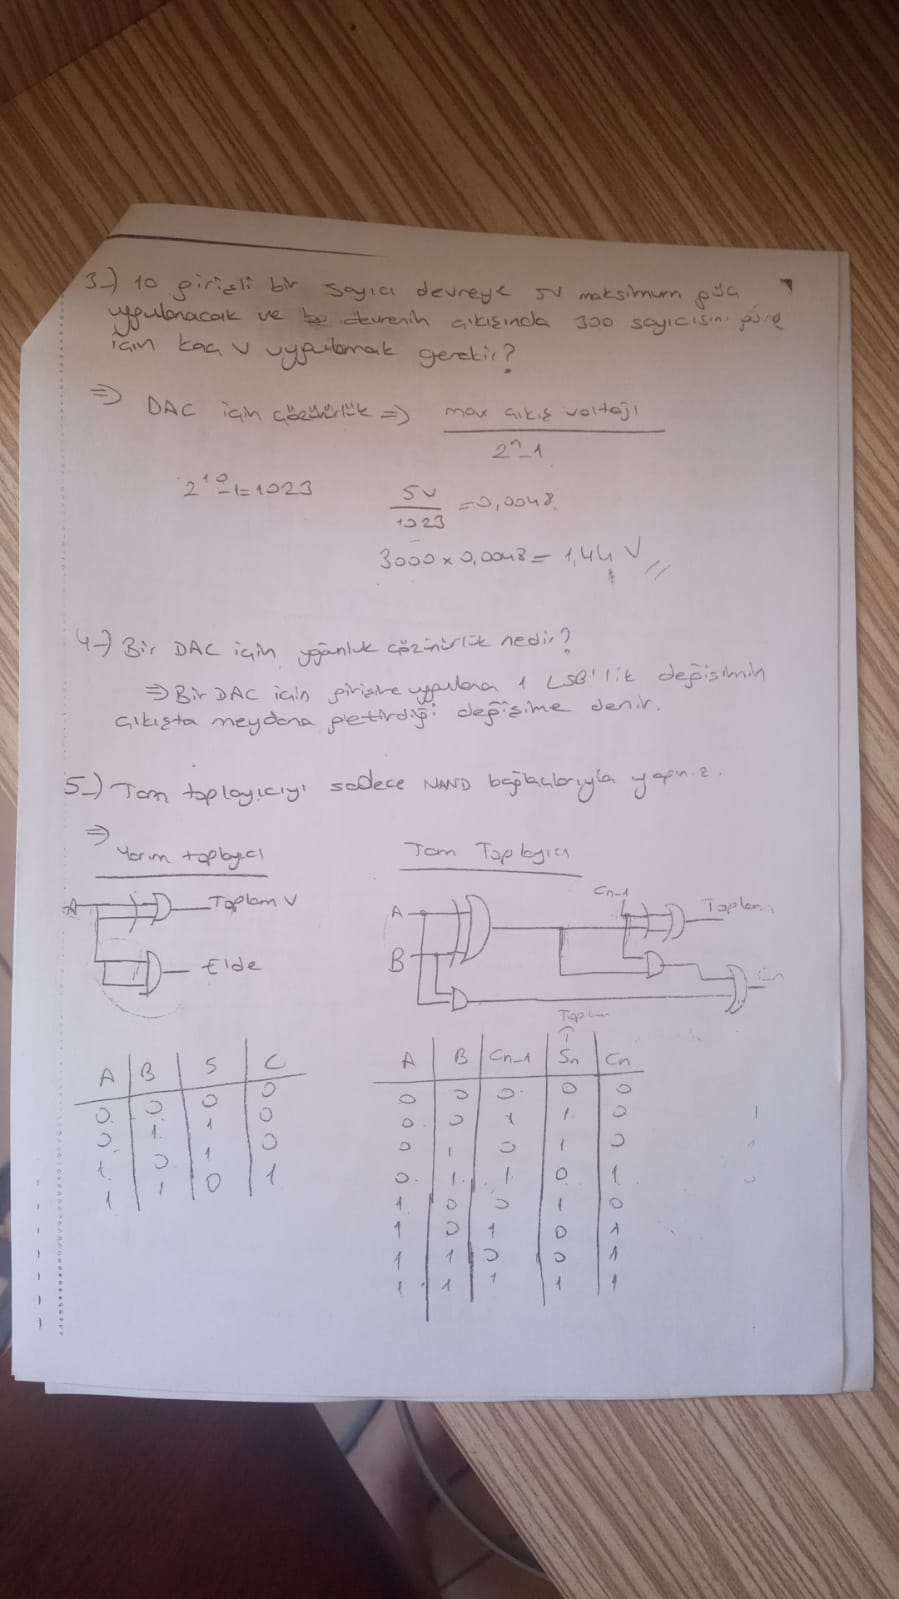 3-) 10 girişli bir sayıcı devreye 5V maksimum güç
uygulanacak ve bu devrenin çıkışında 300 sayıcısını
için kaç V uygulamak gerekir?
=> DAC için çözünürlük => max çıkış voltajı
2^n-1
2^10-1=1023
5V
1023
=0,0048
3000 x 0,0048 = 1,44 V //
4-) Bir DAC için çözünürlük nedir?
=> Bir DAC için girişine uygulana 1 LSB'lik değişimin
çıkışta meydana getirdiği değişime denir.
5-) Tam toplayıcıyı sadece NAND bağlaçlarıyla yapınız.
=>
Yarım toplayıcı
Tam Toplayıcı
A
Toplam V
Elde
A
B
Cn-1
Toplam
Cn
A B S C
0 0 0 0
0 1 1 0
1 0 1 0
1 1 0 1
Toplam
A B Cn-1 Sn Cn
0 0 0 0 0
0 0 1 1 0
0 1 0 1 0
0 1 1 0 1
1 0 0 1 0
1 0 1 0 1
1 1 0 0 1
1 1 1 1 1